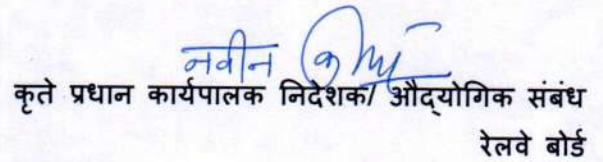 नवीन कुमार
कृते प्रधान कार्यपालक निदेशक/ औद्योगिक संबंध
रेलवे बोर्ड